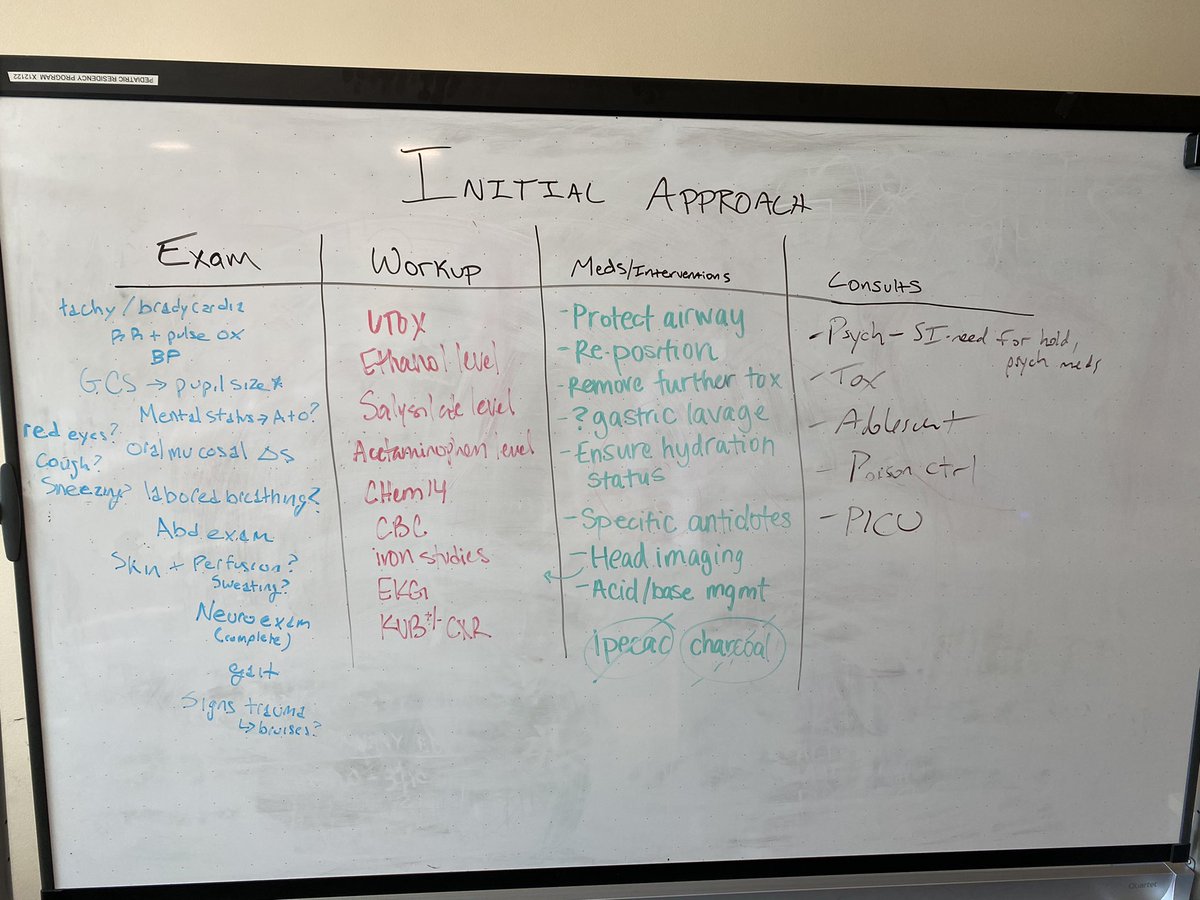 PEDIATRIC RESIDENCY PROGRAM X12122
INITIAL APPROACH
Exam
tachy/bradycardia
RR + pulse ox
BP
GCS → pupil size*
Mental status → A+O?
red eyes?
Oral mucosal Δs
Cough?
Sneezing?
labored breathing?
Abd exam
Skin + Perfusion?
Sweating?
Neuro exam
(complete)
gait
Signs trauma
↳ bruises?
Workup
UTOX
Ethanol level
Salysilate level
Acetaminophen level
CHem 14
CBC
iron studies
EKG
KUB +/- CXR
Meds/Interventions
- Protect airway
- Re-position
- Remove further tox
- ? gastric lavage
- Ensure hydration
status
- Specific antidotes
- Head imaging
- Acid/base mgmt
ipecac charcoal
Consults
- Psych - SI-need for hold,
psych meds
- Tox
- Adolescent
- Poison ctrl
- PICU